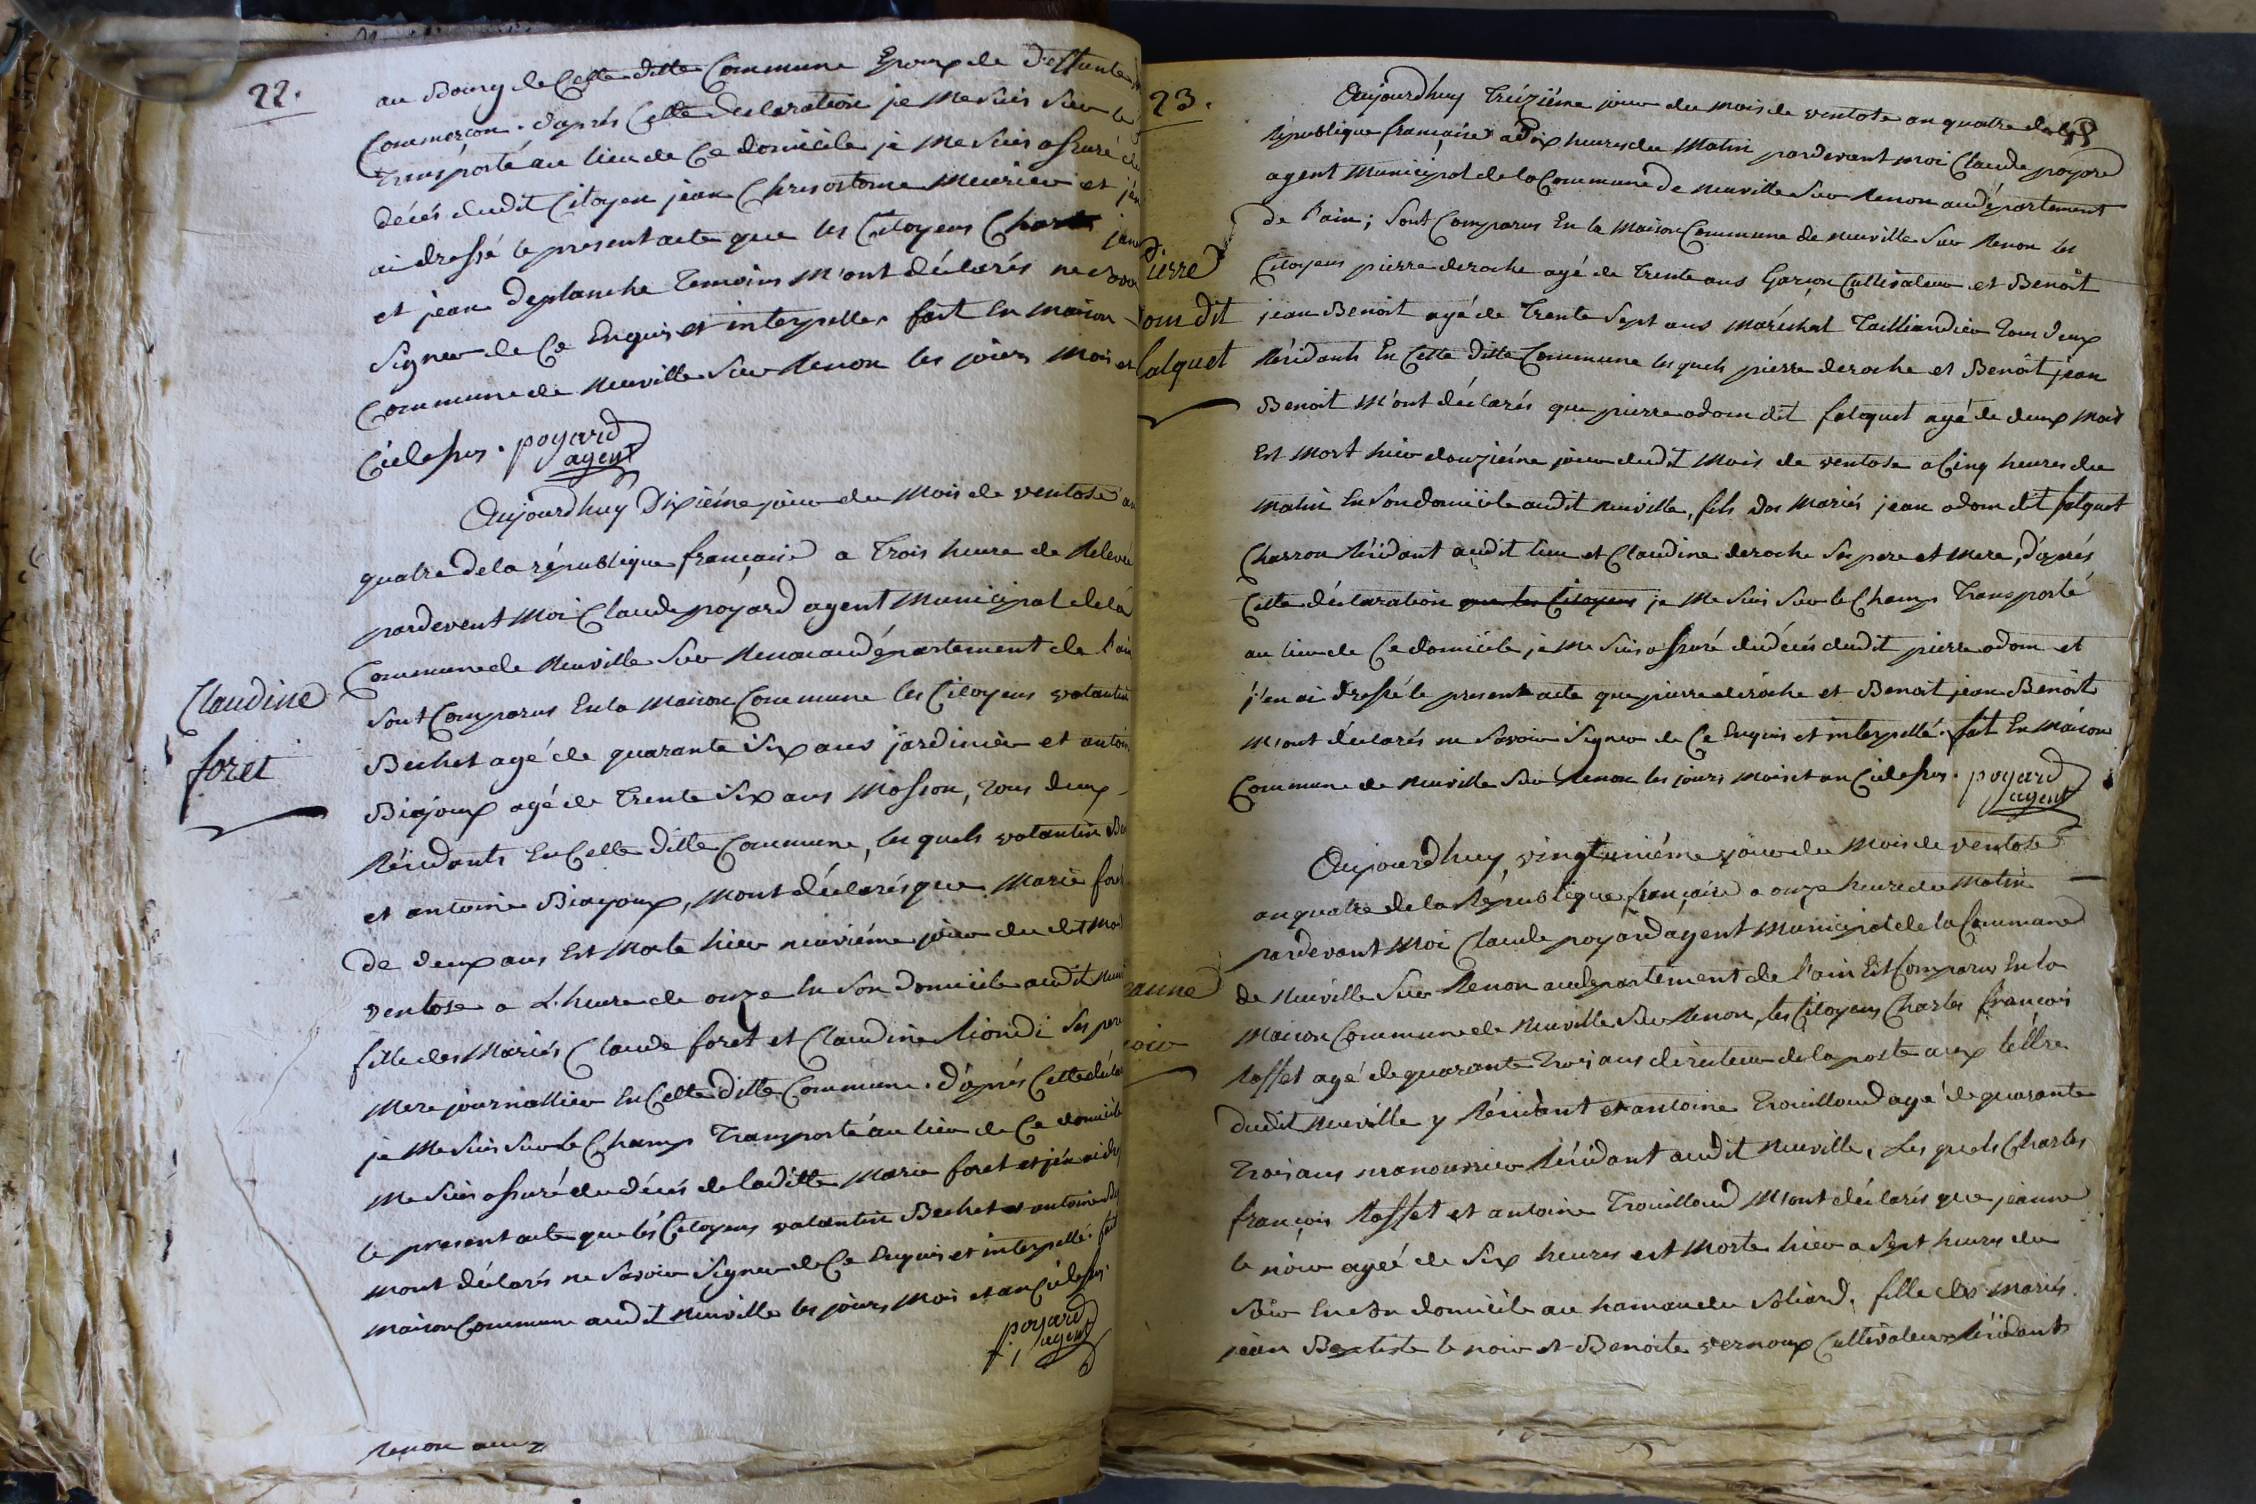 22.
au Bourg de Cette ditte Commune Epoux de deffunte
Commerçon. d'aprés Cette declaration je me suis sur le
Transporté au lieu de Ce domicile je me suis assuré du
décés dudit Citoyen jean Chrisostome Meurier et j'en
ai dressé le present acte que les Citoyens jean
et jean Deplanche Temoins m'ont déclarés ne savoir
Signer de Ce Enquis et interpellés fait En maison
Commune de Neuville Sur Renon les jours mois et
Cidessus. poyard
agent
Aujourdhuy Dixiéme jour du mois de ventose an
quatre de la république française a Trois heure de Relevé
pardevent moi Claude poyard agent municipal de la
Commune de Neuville Sur Renon audépartement de l'ain
Sont Comparus En la maison Commune les Citoyens valantin
Claudine
foret
Bechet agé de quarante Six ans jardinier et antoine
Biajoux agé de Trente Six ans Masson, Tous deux
Résidants En Cette ditte Commune, les quels valantin
et antoine Biajoux, mont déclarés que Marie foret
de deux ans Est Morte hier neuviéme jour du dit mois
ventose a L'heure de onze En Son domicile audit
fille des Mariés Claude foret et Claudine Siondi Ses pere
Mere journallier En Cette ditte Commune. d'aprés Cette
je me suis sur le Champ Transporté au lieu de Ce domicile
me suis assuré du décés de laditte Marie foret et j'en ai
le present acte que les Citoyens valantin Bechet et antoine
mont déclarés ne Savoir Signer de Ce Enquis et interpellé. fait
maison Commune audit Neuville les jours mois et an Cidessus.
poyard
agent
Renon
23.
Aujourdhuy Treiziéme jour du mois de ventose an quatre de la
République française a Dix heures du Matin pardevant moi Claude poyard
agent Municipal de la Commune de Neuville Sur Renon audépartement
de l'ain; Sont Comparus En la Maison Commune de neuville Sur Renon les
pierre
odom dit
falquet
Citoyens pierre deroche agé de Trente ans Garçon Cultivateur et Benoit
jean Benoit agé de Trente Sept ans Maréchal Tailliandier Tous deux
Résidants En Cette ditte Commune les quels pierre deroche et Benoit jean
Benoit M'ont déclarés que pierre odom dit falquet agé de deux mois
Est Mort hier douziéme jour dudit Mois de ventose a Cinq heures du
Matin En Son domicile audit neuville, fils des Mariés jean odom dit falquet
Charron Résidant audit lieu et Claudine deroche Ses pere et mere, d'aprés
Cette déclaration que les Citoyens je me suis sur le Champ Transporté
au lieu de Ce domicile je me suis assuré du décés dudit pierre odom et
j'en ai dressé le present acte que pierre deroche et Benoit jean Benoit
m'ont déclarés ne Savoir Signer de Ce Enquis et interpellé. fait En Maison
Commune de Neuville Sur Renon les jours mois et an Cidessus. poyard
agent
Aujourdhuy, vingtuniéme jour du mois de ventose
an quatre de la République française a onze heure du Matin
pardevant Moi Claude poyard agent Municipal de la Commune
de Neuville Sur Renon audepartement de l'ain Est Comparus En la
Maison Commune de Neuville Sur Renon, les Citoyens Charles françois
Rosset agé de quarante Trois ans directeur de la poste aux lettre
dudit Neuville y Résidant et antoine Trouilloud agé de quarante
Trois ans manouvrier Résidant audit Neuville, Les quels Charles
françois Rosset et antoine Trouilloud M'ont déclarés que jeanne
le noir agée de Six heures est Morte hier a Sept heures du
Soir En Son domicile au hamau du Soliard, fille des mariés
jean Baptiste le noir et Benoite vernoux Cultivateurs Résidants